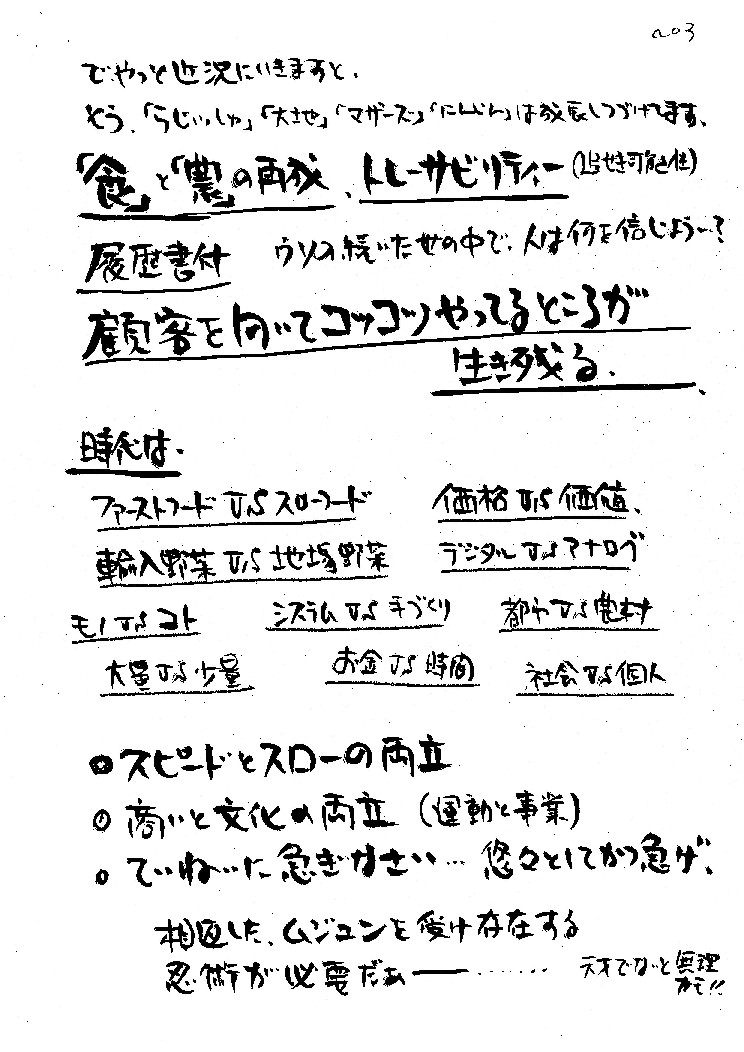 no3
でやっと近況にいきますと、
どう、「らじぃっしゅ」「大地」「マザーズ」「にんじん」は成長しつづけてます、
「食」と「農」の再成、トレーサビリティー(追せき可能性)
履歴書付 ウソの続いた世の中で、人は何を信じよう〜?
顧客を向いてコツコツやってるところが
生き残る、
時代は、
ファーストフード V.S スローフード 価格 V.S 価値、
輸入野菜 V.S 地場野菜 デジタル V.S アナログ
モノ V.S コト システム V.S 手づくり 都市 V.S 農村
大量 V.S 少量 お金 V.S 時間 社会 V.S 個人
○スピードとスローの両立
○商いと文化の両立(運動と事業)
○ていねいに急ぎなさい… 悠々としてかつ急げ、
相反した、ムジュンを受け存在する
忍術が必要だぁー……… 天才でないと無理
かも!!